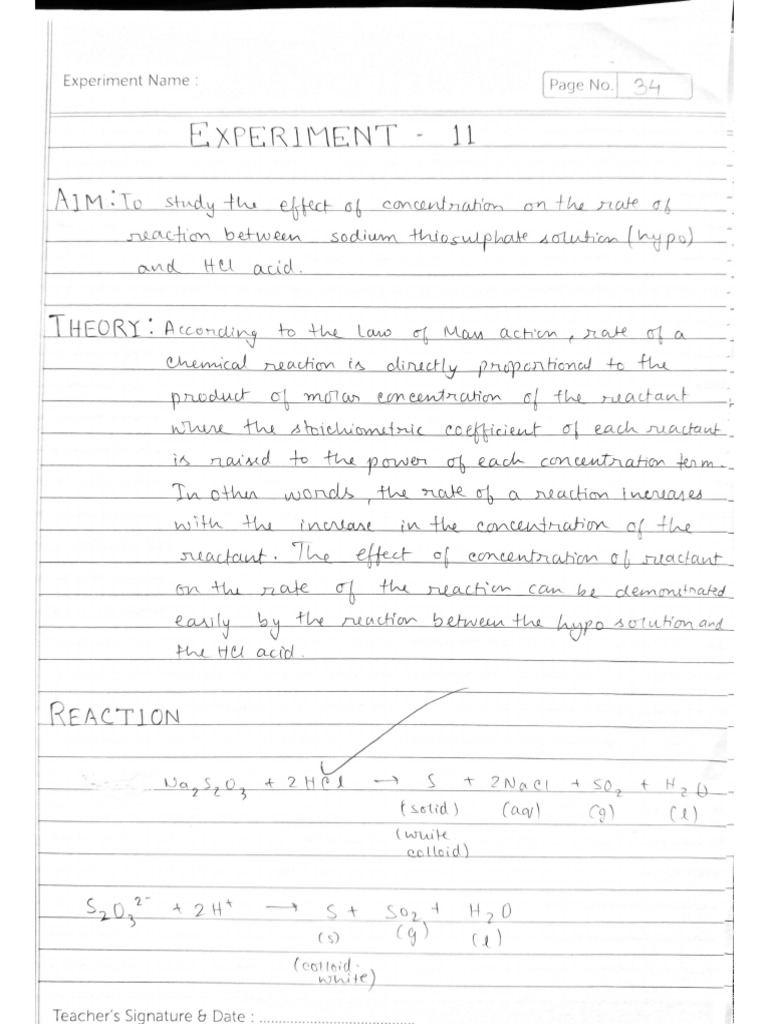 Experiment Name :
Page No. 34
EXPERIMENT - 11
AIM: To study the effect of concentration on the rate of
reaction between sodium thiosulphate solution (hypo)
and HCl acid.
THEORY: According to the law of Mass action, rate of a
chemical reaction is directly proportional to the
product of molar concentration of the reactant
where the stoichiometric coefficient of each reactant
is raised to the power of each concentration term.
In other words, the rate of a reaction increases
with the increase in the concentration of the
reactant. The effect of concentration of reactant
on the rate of the reaction can be demonstrated
easily by the reaction between the hypo solution and
the HCl acid.
REACTION
Na₂S₂O₃ + 2HCl → S + 2NaCl + SO₂ + H₂O
(solid) (aq) (g) (l)
(white
colloid)
S₂O₃²⁻ + 2H⁺ → S + SO₂ + H₂O
(s) (g) (l)
(colloid-
white)
Teacher's Signature & Date : ........................................